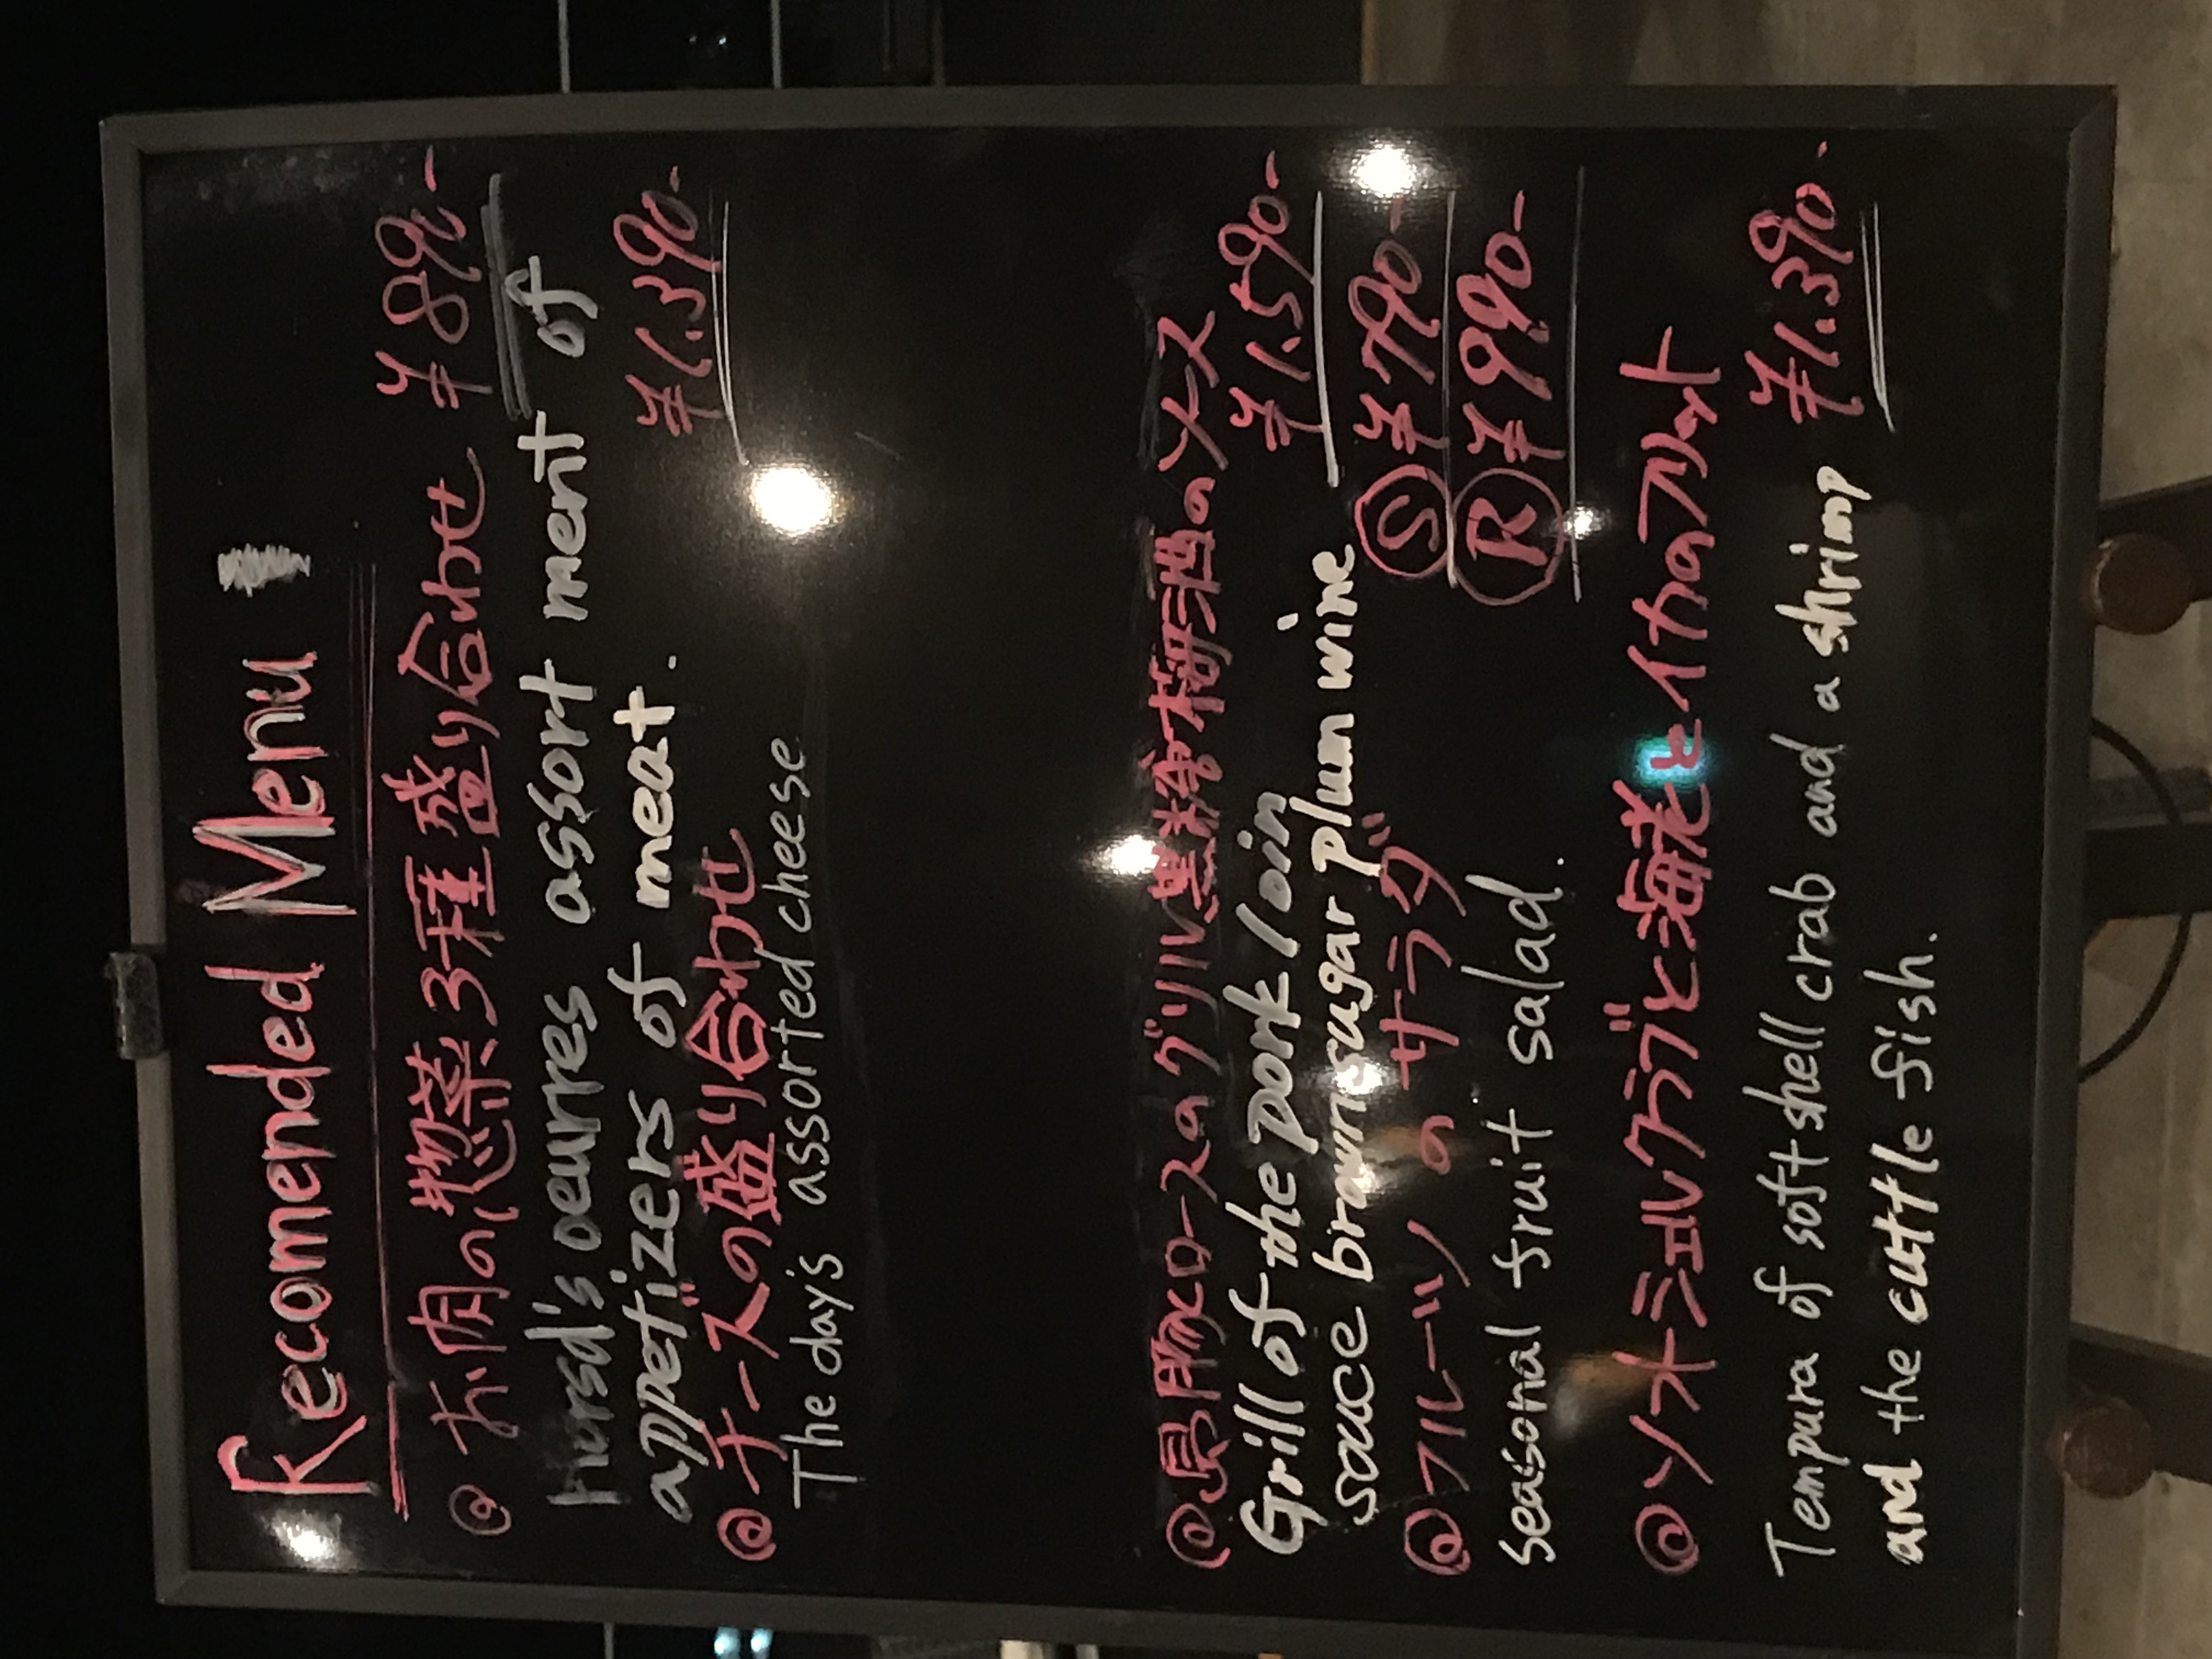 Recomended Menu
@ お肉の惣菜3種盛り合わせ ¥890-
horsd's oeurres assort ment of
appetizers of meat.
¥1.390-
@チーズの盛り合わせ
The day's assorted cheese
@島豚ロースのグリル黒糖梅酒のソース
¥1.590-
Grill of the pork loin
sauce brown sugar plum wine
@フルーツのサラダ
Ⓢ ¥790-
Ⓡ ¥990-
seasonal fruit salad.
@ソフトシェルクラブと海老とイカのフリット
¥1.390-
Tempura of soft shell crab and a shrimp
and the cuttle fish.